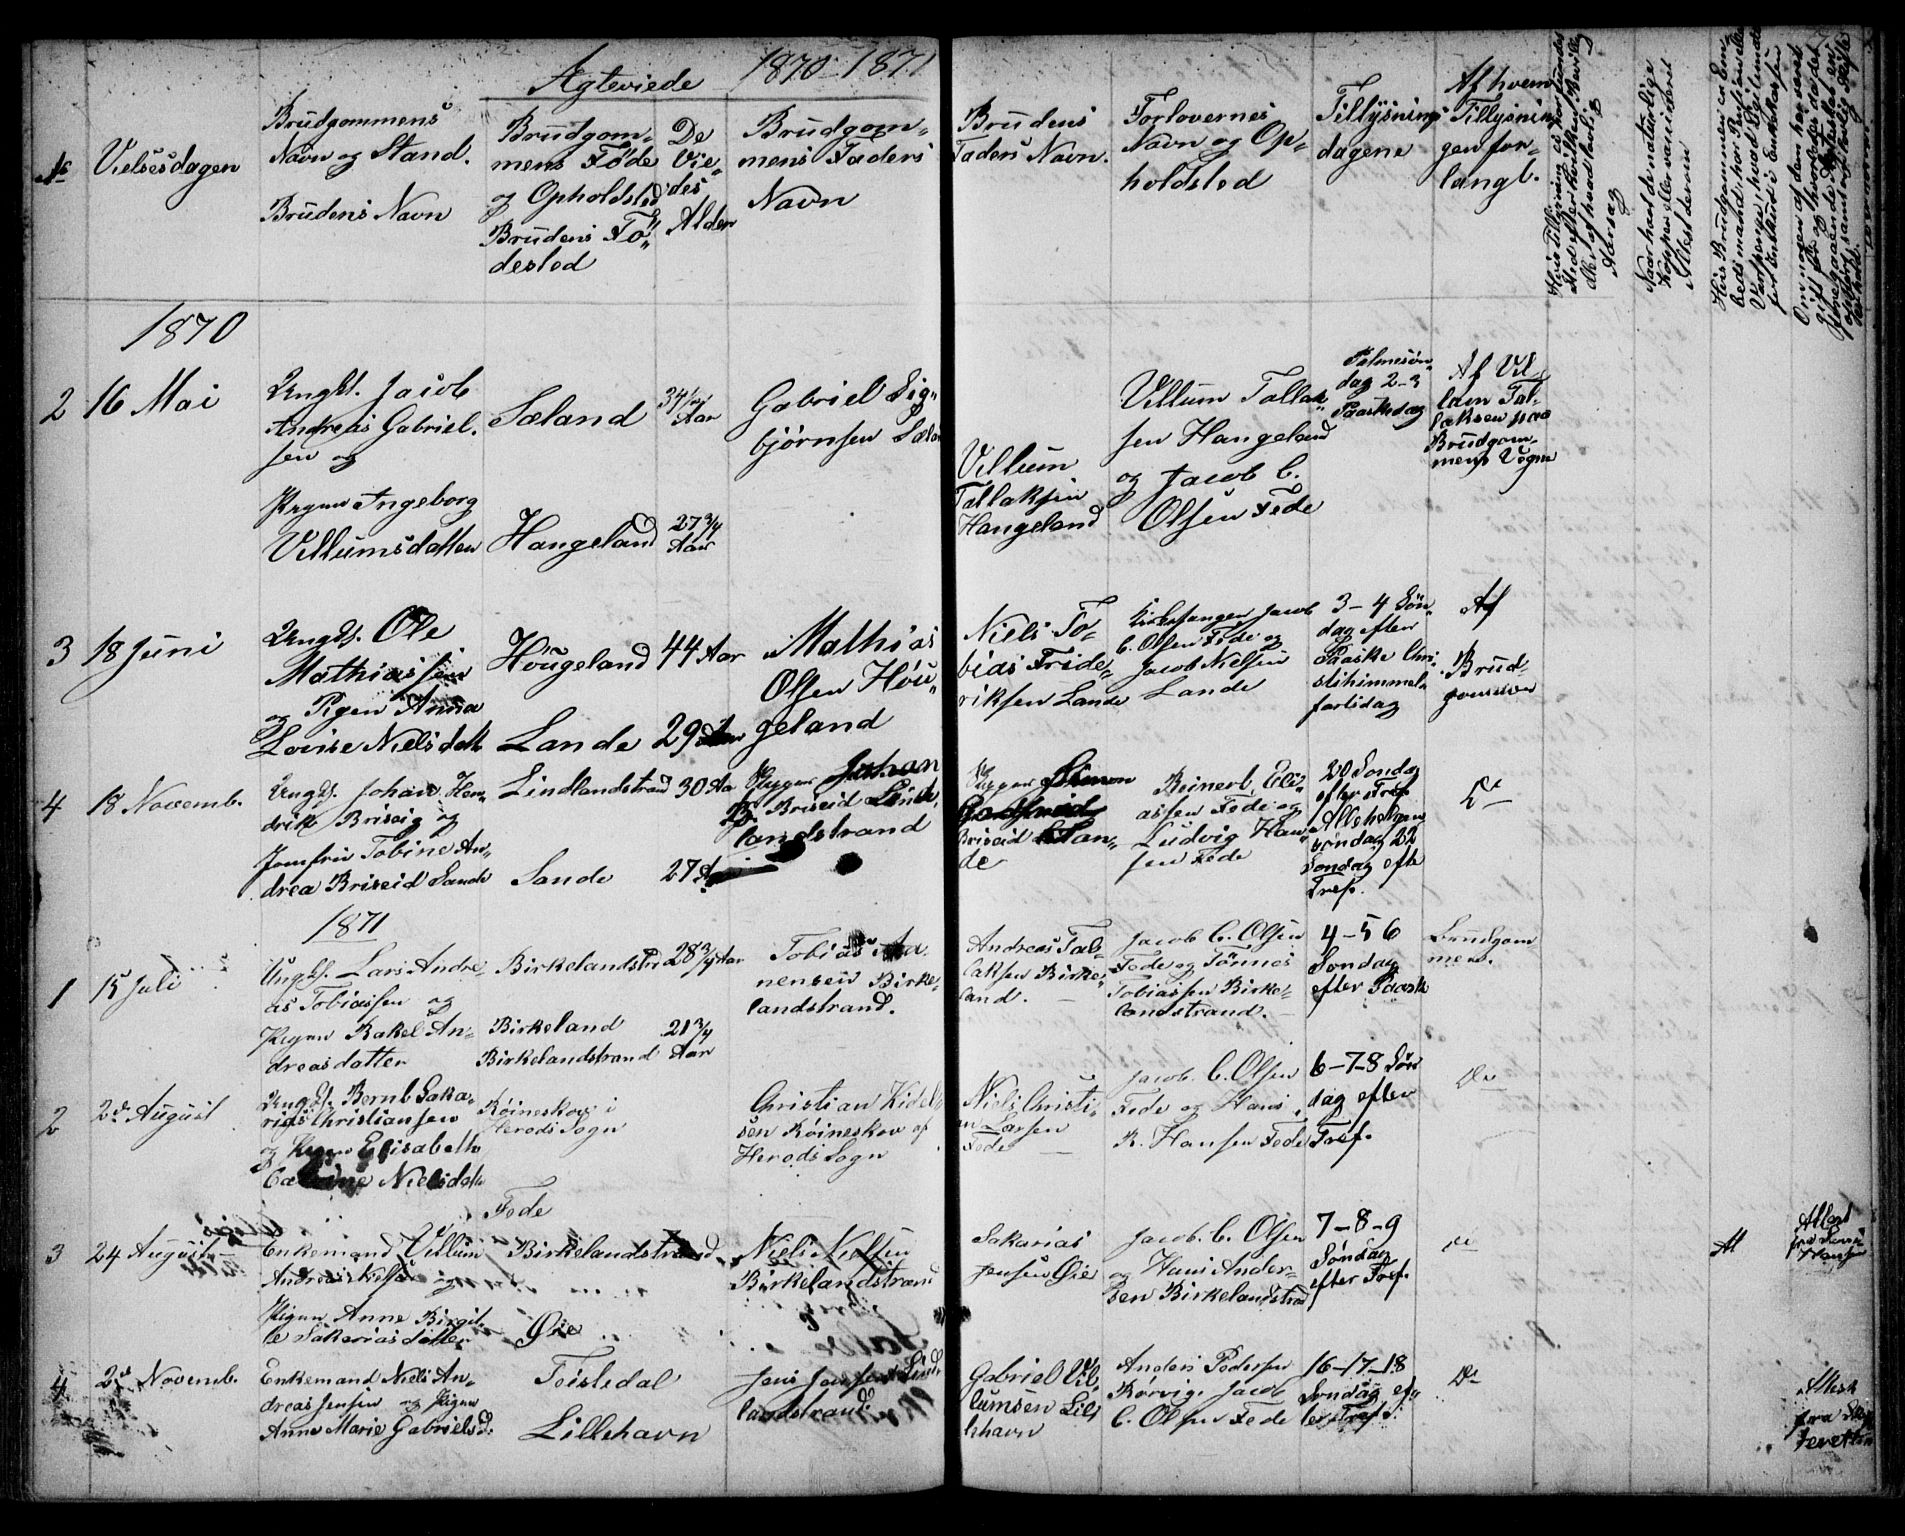 Ægteviede 1870-1871
No
Vielsesdagen
Brudgommens
Navn og Stand.
Brudens Navn
Brudgom-
mens Føde
og Opholdsted
Brudens Fø-
dested
De
Vie-
des
Alder
Brudgom-
mens Faders
Navn
Brudens
Faders Navn.
Forlovernes
Navn og Op-
holdsted
Tillysnings
dagene
Af hvem
Tillysnin
gen for-
langt.
1870
2
16 Mai
Ungk. Jacob
Andreas Gabriel-
sen og
Pigen Ingeborg
Villumsdatter
Sæland
Hangeland
Aar
27 3/4
Aar
Gabriel Sig-
bjørnsen Sæla
Villum
Tallaksen
Hangeland
Villum Tallak
sen Hangeland
og Jacob C.
Olsen Fede
Palmesøn-
dag 2-3
Paaskedag
Af Vil
lum Tal-
laksen paa
Brudgom-
mens Vegne
3
18 Juni
Ungk. Ole
Mathiassen
og Pigen Anna
Lovise Nielsdatt
Høugeland
Lande
44 Aar
29 Aar
Mathias
Olsen Høu-
geland
Niels To-
bias Fride-
riksen Lande
Kirkesanger Jacob
C. Olsen Fede og
Jacob Nielsen
Lande
3-4 Søn-
dag efter
Paaske Chri-
stihimmel-
fartsdag
Af
Brud-
gommen
4
18 Novemb.
Ungk. Johan Hen-
drik Briseid og
Jomfru Tobine An-
drea Briseid Sande
Lindlandstrand
Sande
30 Aa
27
Skyper Johan
Briseid Lind-
landstrand
Skyper Simon
Briseid San-
de
Reinert Eli-
assen Fede og
Ludvig Han-
sen Fede
20 Søndag
efter Tref.
Allehelgens
søndag 22
Søndag efte
Tref.
Do
1871
1
15 Juli
Ungk. Lars Andre-
as Tobiassen og
Pigen Rakel An-
dreasdatter
Birkelandstr
Birkeland
Birkelandstrand
28 3/4 Aar
21 3/4
Aar
Tobias Aa
nensen Birke-
landstrand.
Andreas Tal-
laksen Birke-
land.
Jacob C. Olsen
Fede og Tønnes
Tobiassen Birke-
landstrand.
4-5 6
Søndag
efter Paask
Brudgom
mens.
2
2de August
Ungk. Bernt Saka-
rias Christiansen
og Pigen Elisabeth
Nielsdatt
Røineskov i
Herods Sogn
Fede
Christian Kidel-
sen Røineskov af
Herods Sogn
Niels Christi-
an Larsen
Fede
Jacob. C. Olsen
Fede og Hans
R. Hansen Fede
6-7-8 Søn
dag efter
Tref.
Do
3
24 August
Enkemand Villum
Andreas Nilsen og
Pigen Anne Birgit-
te Sakariasdatter
Birkelandstrand
Øie
Niels Nielsen
Birkelandstrand
Sakarias
Jensen Øie
Jacob. C. Olsen
og Hans Ander-
sen Birkelandstrad
7-8-9
Søndag
efter Tref.
Do
At
Attest
fra
4
2de Novemb.
Enkemand Niels An-
dreas Jensen og Pigen
Anne Marie Gabrielsd.
Foisledal
Lillehavn
Jens Jensen Lind
landstrand
Gabriel Vil-
lumsen Lil-
lehavn
Anders Pedersen
Rørvig. Jacob
C. Olsen Fede
16-17-18
Søndag ef-
ter Tref.
Do
Attest
fra Ski
feretten